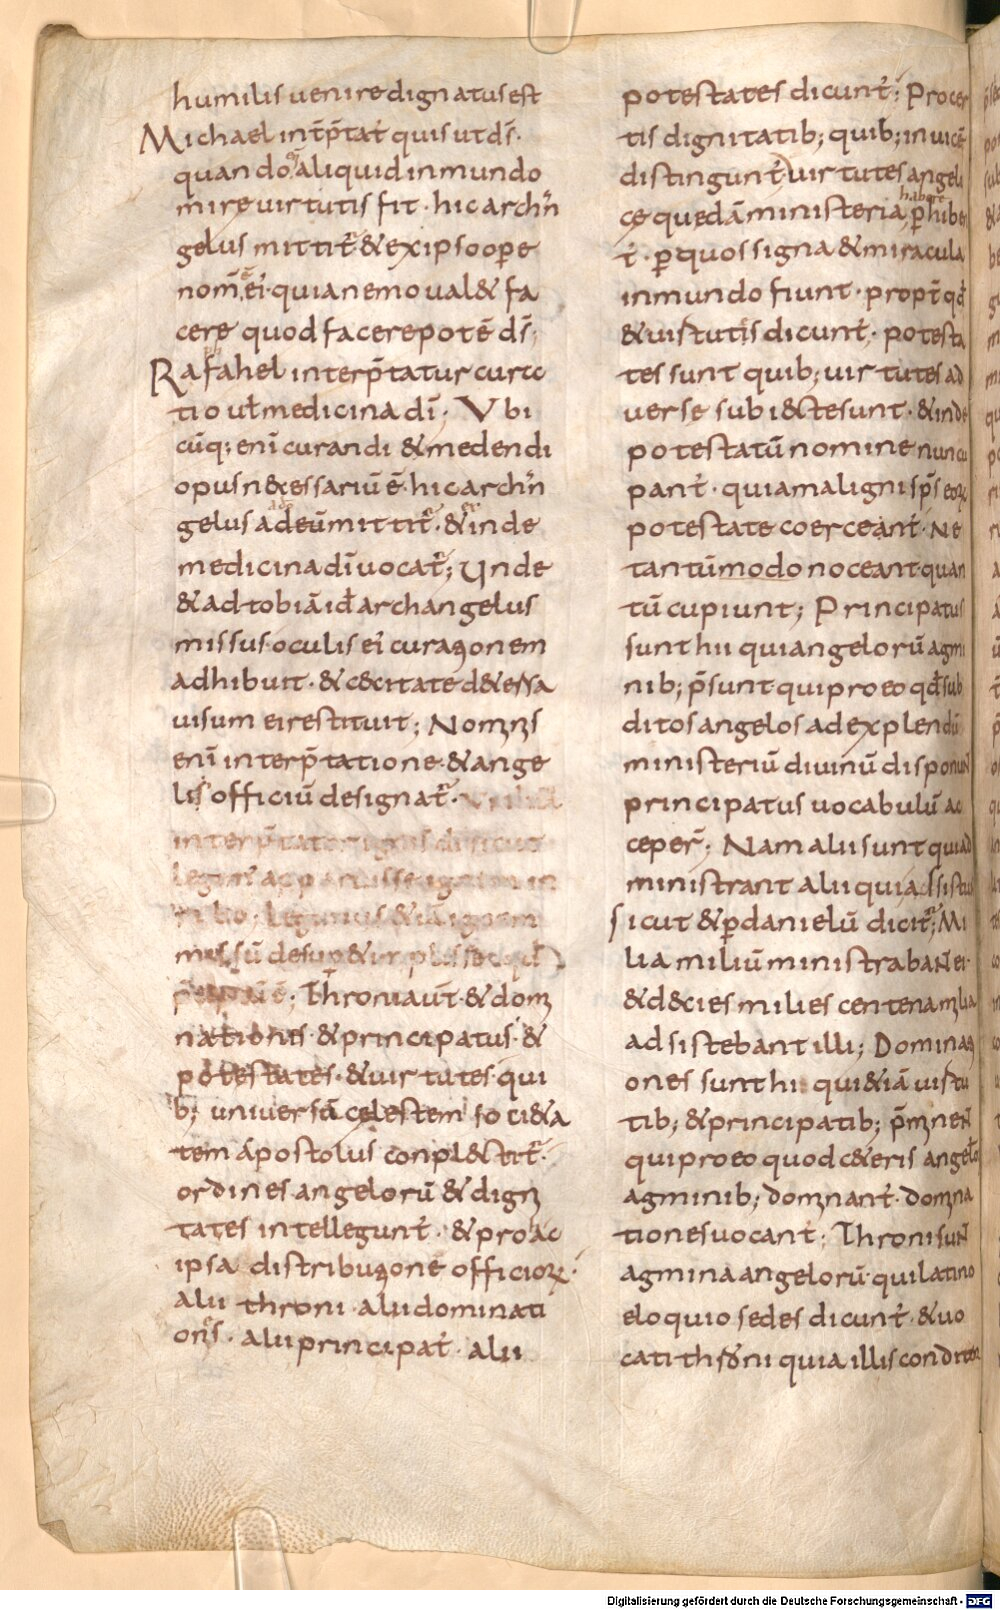 humilis uenire dignatus est
Michael int̄p̄tat̉ quis ut d̄s·
quando aliquid in mundo
mire uirtutis fit · hic archn̄
gelus mittit̉ & ex ipso ope
nom̄ ei· quia nemo ual& fa
cere quod facere pot ē d̄s;
Rafahel interp̄tatur cura
tio ul̄ medicina dī · Vbi
cūq; enī curandi & medendi
opus n&essariū ē· hic archn̄
gelus ad eū mittit̉ · & inde
medicina dī uocat̉; Unde
& ad tobiā id̄ archangelus
missus oculis ei curationem
adhibuit · & c&citate d&ersa
uisum ei restituit; Nominis
enī interp̄tatione & ange
lis officiū designat̉·
Throni aūt & domi
nationis & principatus · &
potestates · & uirtutes qui
b; uniuersā celestem soci&a
tem apostolus conpl&tit̉·
ordines angelorū & digni
tates intellegunt̉ · & pro ac
ipsa distributione officioꝝ·
alii throni · alii dominati
ones · alii principat̉ · alii
potestates dicunt̉; Procer
tis dignitatib; quib; inuicē
distingunt̉ uirtutes angeli
habere
ce quedā ministeria p̄hiben
t̉ · ꝑ quos signa & miracula
in mundo fiunt · propt̄ qd̄
& uirtutis dicunt̉ · potesta
tes sunt quib; uirtutes ad
uerse subi&te sunt · & inde
potestatū nomine nuncu
pant̉ · quia maligni sp̄s eoꝝ
potestate coerceant̉· Ne
tantūmodo noceant quan
tū cupiunt; Principatus
sunt hii qui angelorū agmi
nib; p̄sunt qui pro eo qd̄ sub
ditos angelos ad explendū
ministeriū diuinū disponun̄
principatus uocabulū ac
ceper̄; Nam alii sunt qui ad
ministrant alii qui adsistu
sicut & ꝑ danielū dicit̉; Mi
lia miliū ministrabant ei·
& d&cies milies centena milia
adsistebant illi; Dominati
ones sunt hi qui &iā uirtu
tib; & principatib; p̄minent
qui pro eo quod c&eris angelo
agminib; dominant̉ · domina
tiones uocant; Throni sunt
agmina angelorū qui latino
eloquio sedes dicunt̉ · & uo
cati throni quia illis conditor
Digitalisierung gefördert durch die Deutsche Forschungsgemeinschaft - DFG